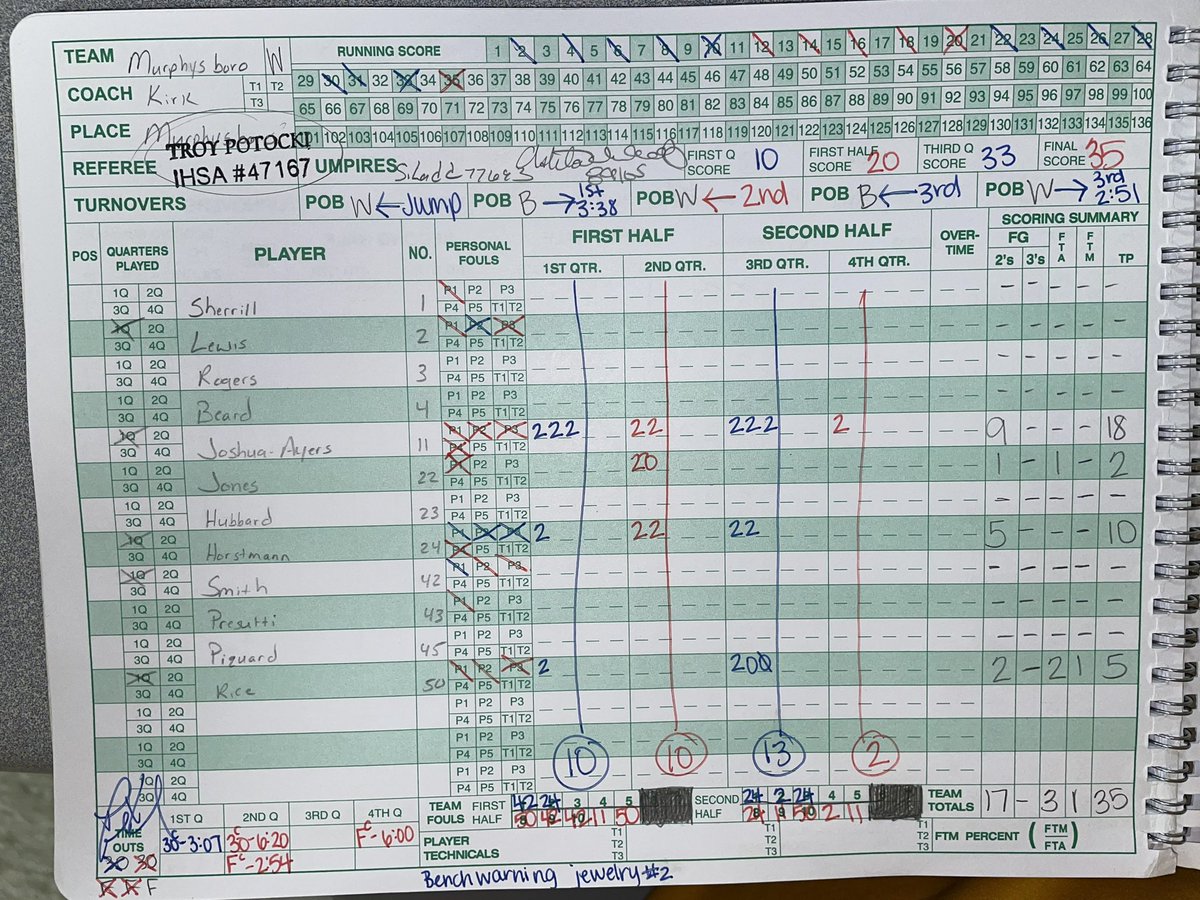 TEAM Murphysboro W RUNNING SCORE 1 2 3 4 5 6 7 8 9 10 11 12 13 14 15 16 17 18 19 20 21 22 23 24 25 26 27 28
29 30 31 32 33 34 35 36 37 38 39 40 41 42 43 44 45 46 47 48 49 50 51 52 53 54 55 56 57 58 59 60 61 62 63 64
COACH Kirk T1 T2 T3
65 66 67 68 69 70 71 72 73 74 75 76 77 78 79 80 81 82 83 84 85 86 87 88 89 90 91 92 93 94 95 96 97 98 99 100
PLACE Murphysboro 101 102 103 104 105 106 107 108 109 110 111 112 113 114 115 116 117 118 119 120 121 122 123 124 125 126 127 128 129 130 131 132 133 134 135 136
REFEREE TROY POTOCKI IHSA #47167 UMPIRES FIRST Q SCORE 10 FIRST HALF SCORE 20 THIRD Q SCORE 33 FINAL SCORE 35
TURNOVERS POB W ← Jump POB B → 1st 3:38 POB W ← 2nd POB B ← 3rd POB W → 3rd 2:51
POS QUARTERS PLAYED PLAYER NO. PERSONAL FOULS FIRST HALF SECOND HALF OVER-TIME SCORING SUMMARY
1ST QTR. 2ND QTR. 3RD QTR. 4TH QTR. FG 2's 3's FTA FTM TP
1Q 2Q P1 P2 P3 - - - - -
3Q 4Q Sherrill 1 P4 P5 T1 T2
1Q 2Q P1 P2 P3 - - - - -
3Q 4Q Lewis 2 P4 P5 T1 T2
1Q 2Q P1 P2 P3 - - - - -
3Q 4Q Rogers 3 P4 P5 T1 T2
1Q 2Q P1 P2 P3 - - - - -
3Q 4Q Beard 4 P4 P5 T1 T2
1Q 2Q P1 P2 P3 222 22 222 2 9 - - - 18
3Q 4Q Joshua-Ayers 11 P4 P5 T1 T2
1Q 2Q P1 P2 P3 20 1 - 1 - 2
3Q 4Q Jones 22 P4 P5 T1 T2
1Q 2Q P1 P2 P3 - - - - -
3Q 4Q Hubbard 23 P4 P5 T1 T2
1Q 2Q P1 P2 P3 2 22 22 5 - - - 10
3Q 4Q Horstmann 24 P4 P5 T1 T2
1Q 2Q P1 P2 P3 - - - - -
3Q 4Q Smith 42 P4 P5 T1 T2
1Q 2Q P1 P2 P3 - - - - -
3Q 4Q Presutti 43 P4 P5 T1 T2
1Q 2Q P1 P2 P3 - - - - -
3Q 4Q Piquard 45 P4 P5 T1 T2
1Q 2Q P1 P2 P3 2 200 2 - 2 1 5
3Q 4Q Rice 50 P4 P5 T1 T2
1Q 2Q P1 P2 P3
3Q 4Q P4 P5 T1 T2
1Q 2Q P1 P2 P3
3Q 4Q P4 P5 T1 T2
10 10 13 2
1Q 2Q P1 P2 P3
3Q 4Q P4 P5 T1 T2
1ST Q 2ND Q 3RD Q 4TH Q TEAM FOULS FIRST HALF 42 24 3 4 5 SECOND HALF 24 2 24 4 5 TEAM TOTALS 17 - 3 1 35
50 42 42 11 50 24 1 50 2 11
TIME OUTS 30c-3:07 30c-6:20 Fc-6:00 PLAYER TECHNICALS T1 T2 T3 T1 T2 T3 T1 T2 T3 FTM PERCENT (FTM/FTA)
30 30 Fc-2:54
F
Bench warning jewelry #2